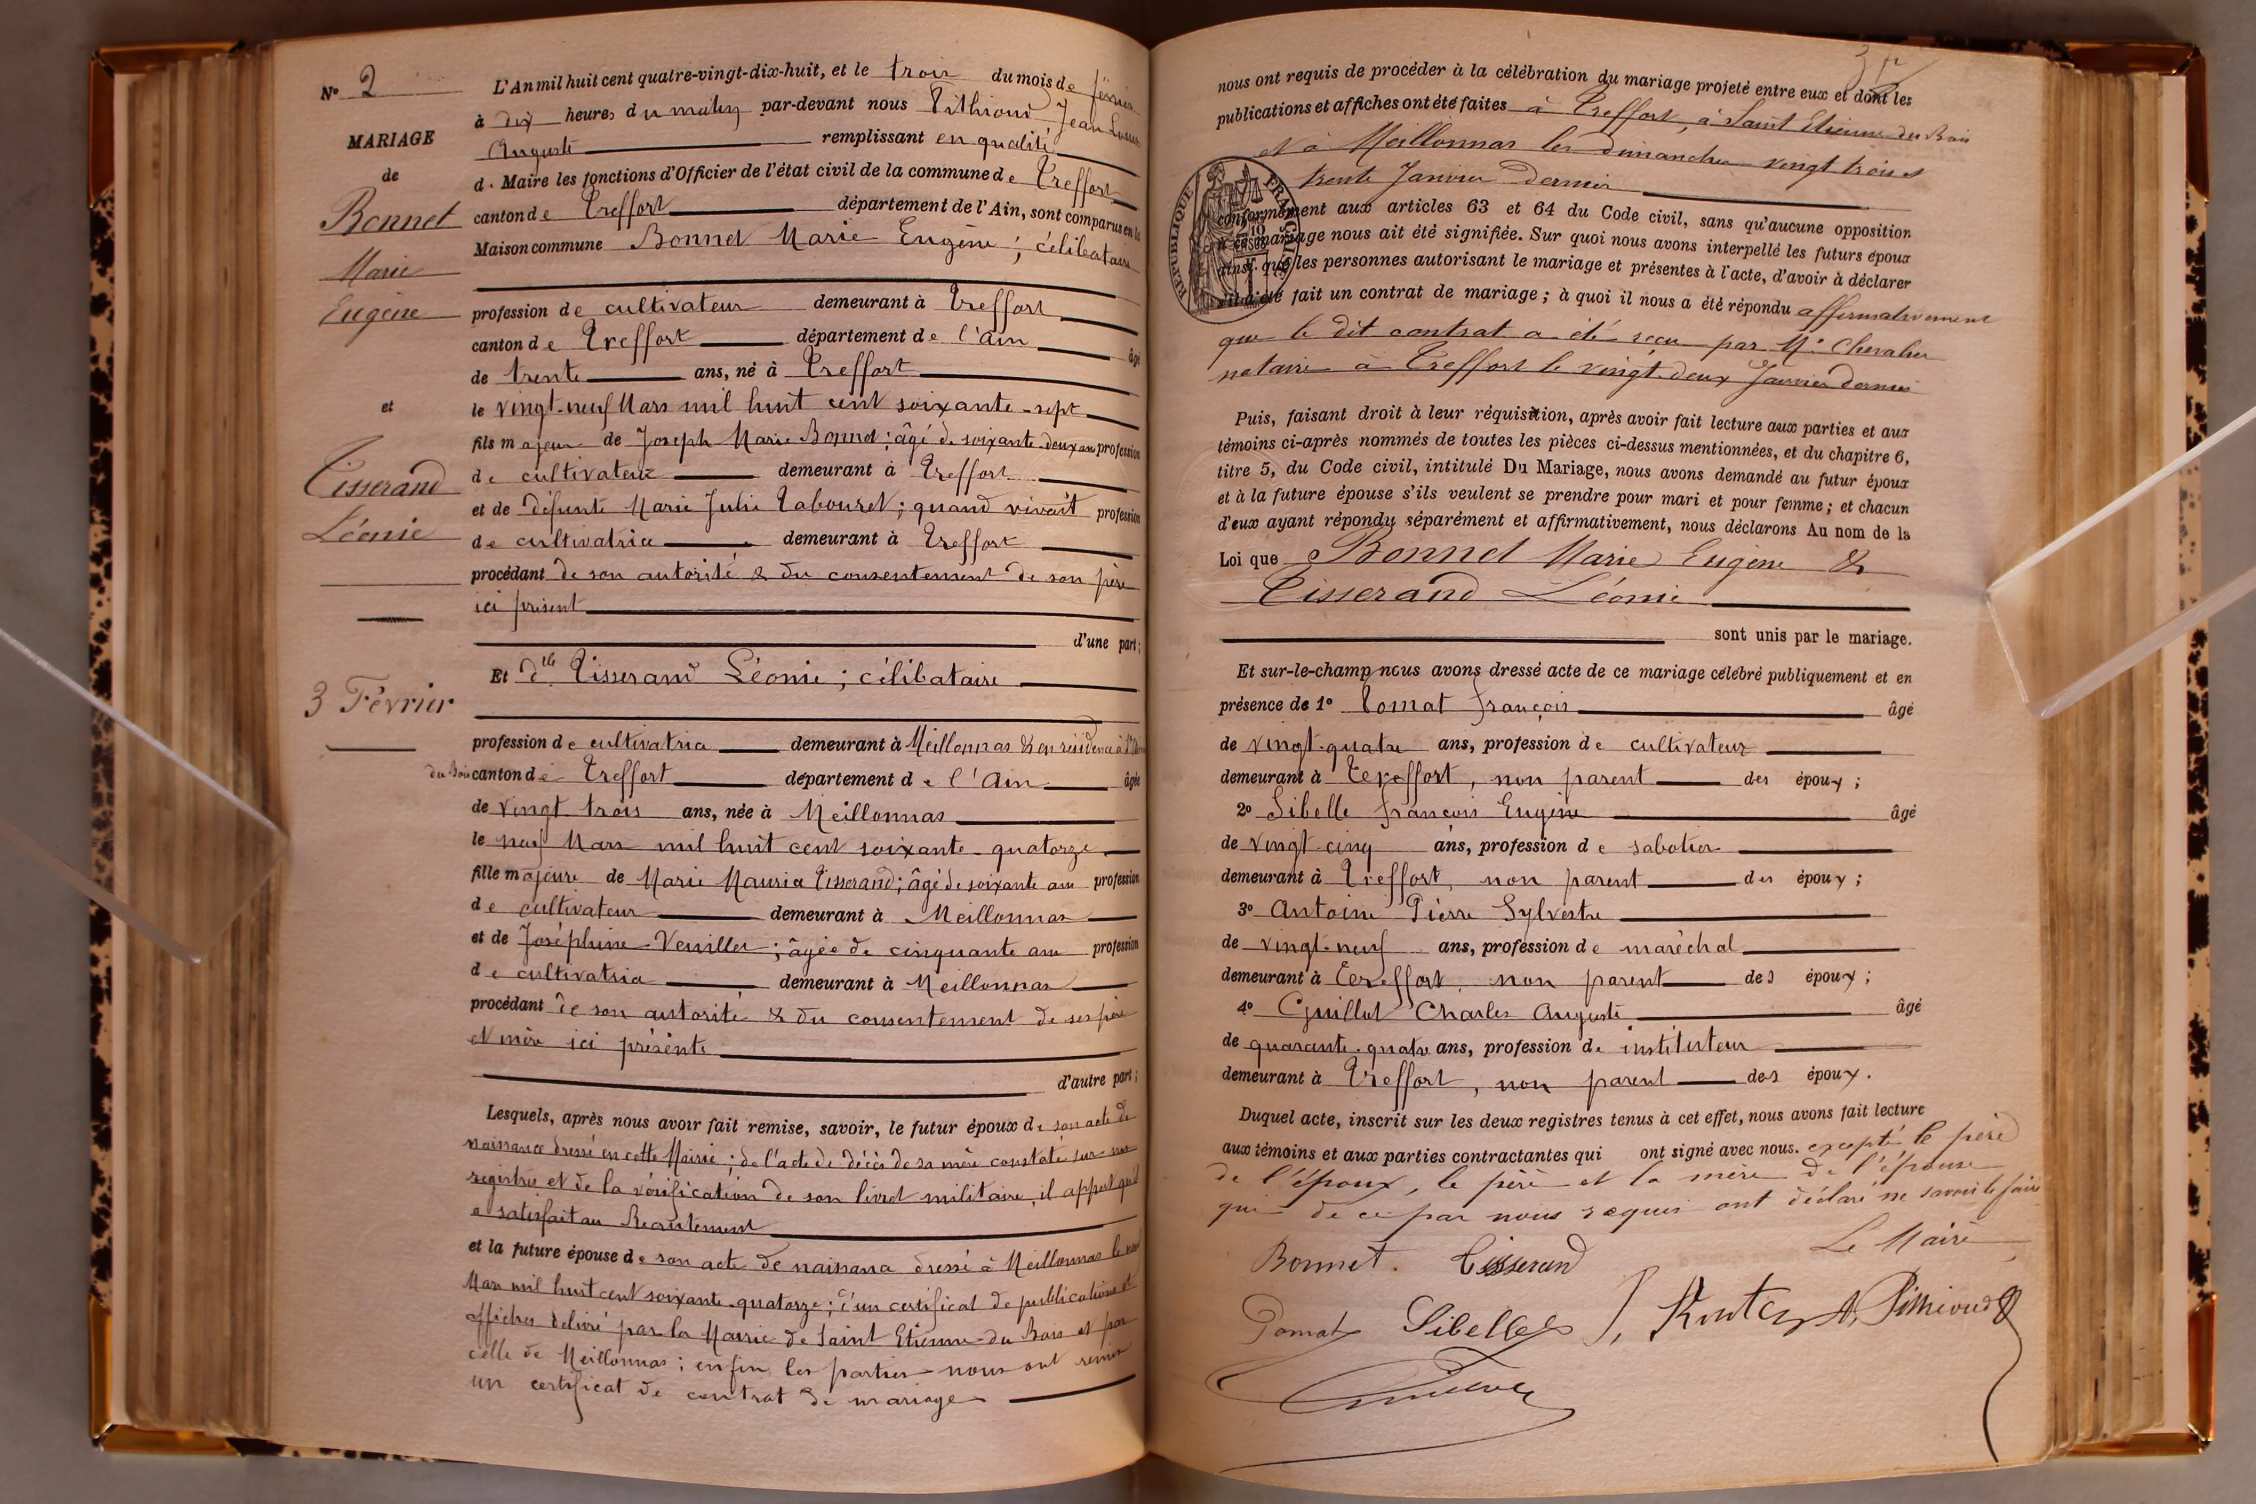 N° 2
MARIAGE
de
Bonnet
Marie
Eugène
et
Tisserand
Léonie
3 Février
L'An mil huit cent quatre-vingt-dix-huit, et le trois du mois de février
à dix heures du matin par-devant nous Pithioud Jean Louis
Auguste remplissant en qualité
d. Maire les fonctions d'Officier de l'état civil de la commune de Treffort
canton de Treffort département de l'Ain, sont comparus en la
Maison commune Bonnet Marie Eugène ; célibataire
profession de cultivateur demeurant à Treffort
canton de Treffort département de l'Ain âgé
de trente ans, né à Treffort
le vingt-neuf Mars mil huit cent soixante-sept
fils majeur de Joseph Marie Bonnet ; âgé de soixante-deux ans profession
de cultivateur demeurant à Treffort
et de défunte Marie Julie Tabouret ; quand vivait profession
de cultivatrice demeurant à Treffort
procédant de son autorité & du consentement de son père
ici présent
d'une part ;
Et dlle Tisserand Léonie ; célibataire
profession de cultivatrice demeurant à Meillonnas & en résidence à St Etienne
du Bois canton de Treffort département de l'Ain âgée
de vingt trois ans, née à Meillonnas
le neuf Mars mil huit cent soixante-quatorze
fille majeure de Marie Maurice Tisserand ; âgé de soixante ans profession
de cultivateur demeurant à Meillonnas
et de Joséphine Veuillet ; âgée de cinquante ans profession
de cultivatrice demeurant à Meillonnas
procédant de son autorité & du consentement de ses père
et mère ici présents
d'autre part ;
Lesquels, après nous avoir fait remise, savoir, le futur époux de son acte de
naissance dressé en cette Mairie ; de l'acte de décès de sa mère constaté sur nos
registres et de la vérification de son livret militaire, il appert qu'il
a satisfait au Recrutement
et la future épouse de son acte de naissance dressé à Meillonnas le neuf
Mars mil huit cent soixante-quatorze ; d'un certificat de publications et
affiches délivré par la Mairie de Saint Etienne-du Bois et par
celle de Meillonnas ; enfin les parties nous ont remis
un certificat de contrat de mariage
nous ont requis de procéder à la célébration du mariage projeté entre eux et dont les
publications et affiches ont été faites à Treffort, à Saint Etienne du Bois
et à Meillonnas les dimanches vingt trois et
trente Janvier dernier
RÉPUBLIQUE FRANÇAISE
conformément aux articles 63 et 64 du Code civil, sans qu'aucune opposition
à ce mariage nous ait été signifiée. Sur quoi nous avons interpellé les futurs époux
ainsi que les personnes autorisant le mariage et présentes à l'acte, d'avoir à déclarer
s'il a été fait un contrat de mariage ; à quoi il nous a été répondu affirmativement
que le dit contrat a été reçu par Me Chevalier
notaire à Treffort le vingt-deux Janvier dernier
Puis, faisant droit à leur réquisition, après avoir fait lecture aux parties et aux
témoins ci-après nommés de toutes les pièces ci-dessus mentionnées, et du chapitre 6,
titre 5, du Code civil, intitulé Du Mariage, nous avons demandé au futur époux
et à la future épouse s'ils veulent se prendre pour mari et pour femme ; et chacun
d'eux ayant répondu séparément et affirmativement, nous déclarons Au nom de la
Loi que Bonnet Marie Eugène &
Tisserand Léonie
sont unis par le mariage.
Et sur-le-champ nous avons dressé acte de ce mariage célébré publiquement et en
présence de 1° Pomat François âgé
de vingt-quatre ans, profession de cultivateur
demeurant à Treffort, non parent des époux ;
2° Sibelle François Eugène âgé
de vingt-cinq ans, profession de sabotier
demeurant à Treffort, non parent des époux ;
3° Antoine Pierre Sylvestre
de vingt-neuf ans, profession de maréchal
demeurant à Treffort, non parent des époux ;
4° Guillot Charles Auguste âgé
de quarante-quatre ans, profession de instituteur
demeurant à Treffort, non parent des époux.
Duquel acte, inscrit sur les deux registres tenus à cet effet, nous avons fait lecture
aux témoins et aux parties contractantes qui ont signé avec nous. excepté le père
de l'époux, le père et la mère de l'épouse
qui de ce par nous requis ont déclaré ne savoir le faire
Le Maire
Bonnet. Tisserand
Pomat Sibelle A. Pithioud